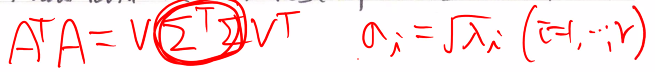 AᵀA = VΣᵀΣVᵀ σᵢ = √λᵢ (i=1,…,r)